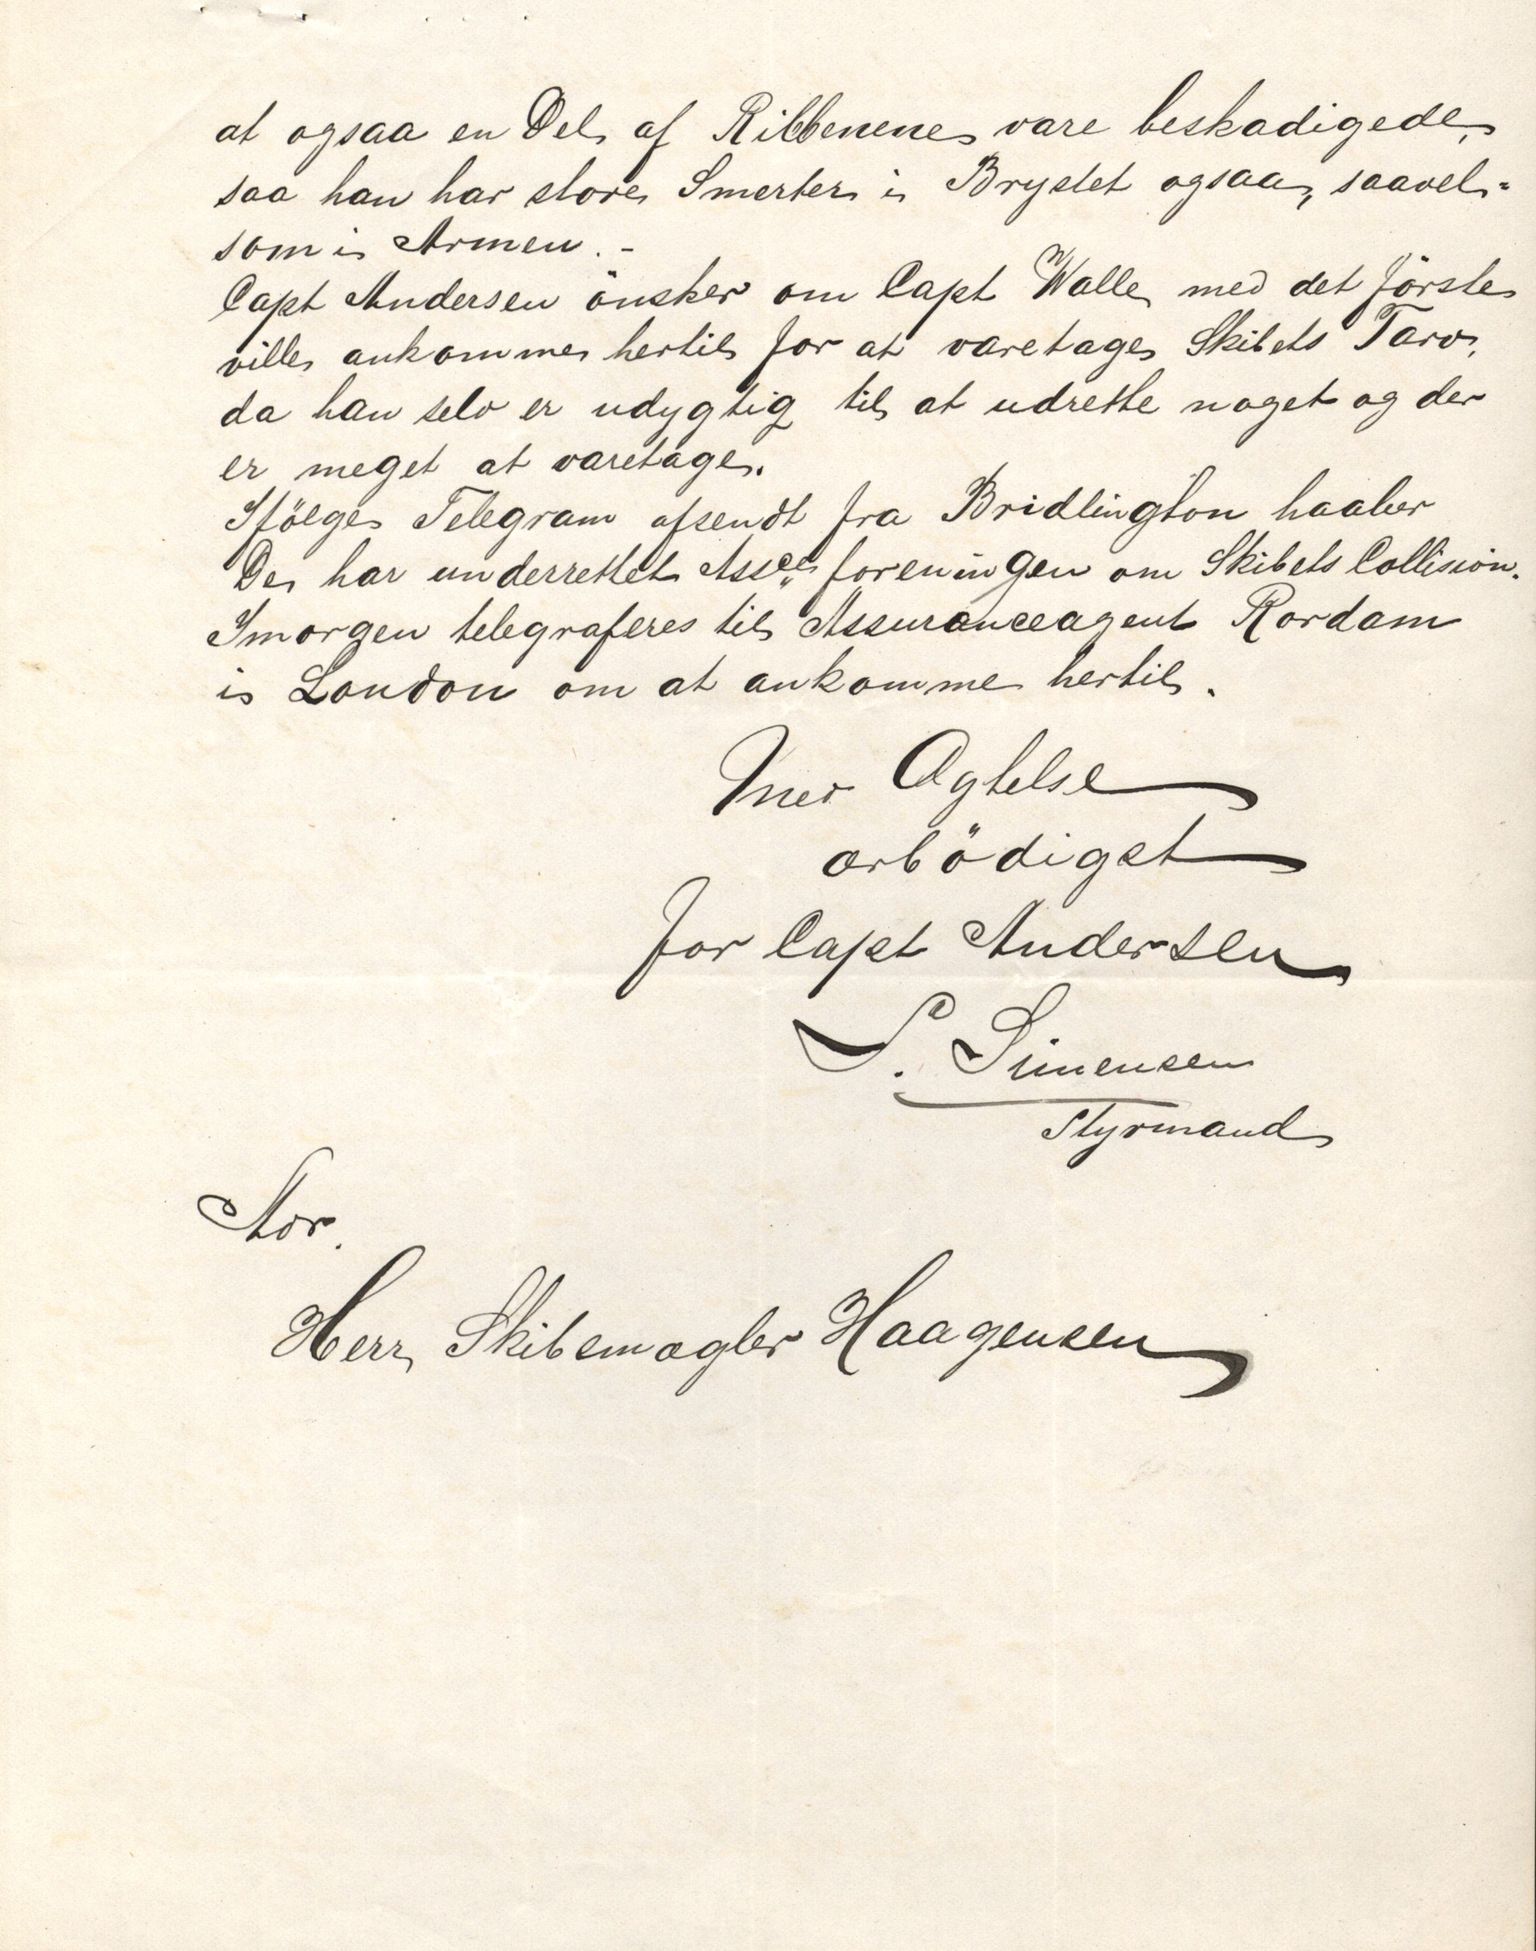 at ogsaa en Del af Ribbenene vare beskadigede,
saa han har store Smerter i Brystet ogsaa, saavel=
som i Armen. -
Capt Andersen önsker om Capt Walle med det förste
ville ankomme hertil for at varetage Skibets Tarv,
da han selv er udygtig til at udrette noget og der
er meget at varetage.
Ifölge Telegram afsendt fra Bridlington haaber
De har underrettet Assce foreningen om Skibets Collision.
Imorgen telegraferes til Assuranceagent Rordam
i London om at ankomme hertil.
Med Agtelse
ærbödigst
for Capt Andersen
S. Simensen
Styrmand
Hr.
Herr Skibsmægler Haagensen